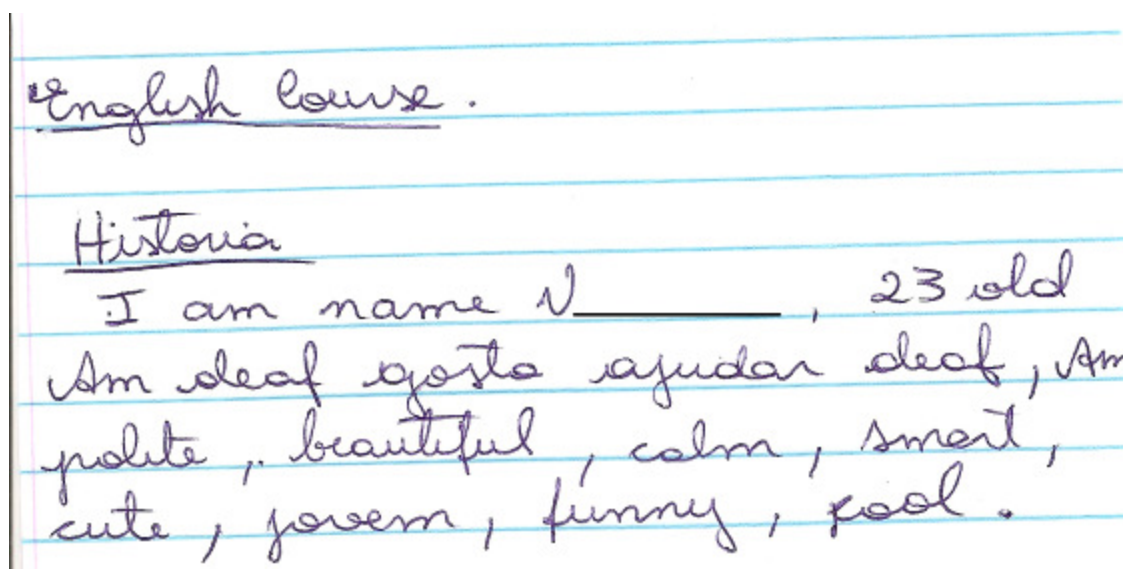 English Course.
Historia
I am name N________, 23 old
Am deaf gosto ajudar deaf, Am
polite, beautiful, calm, smart,
cute, jovem, funny, pool.